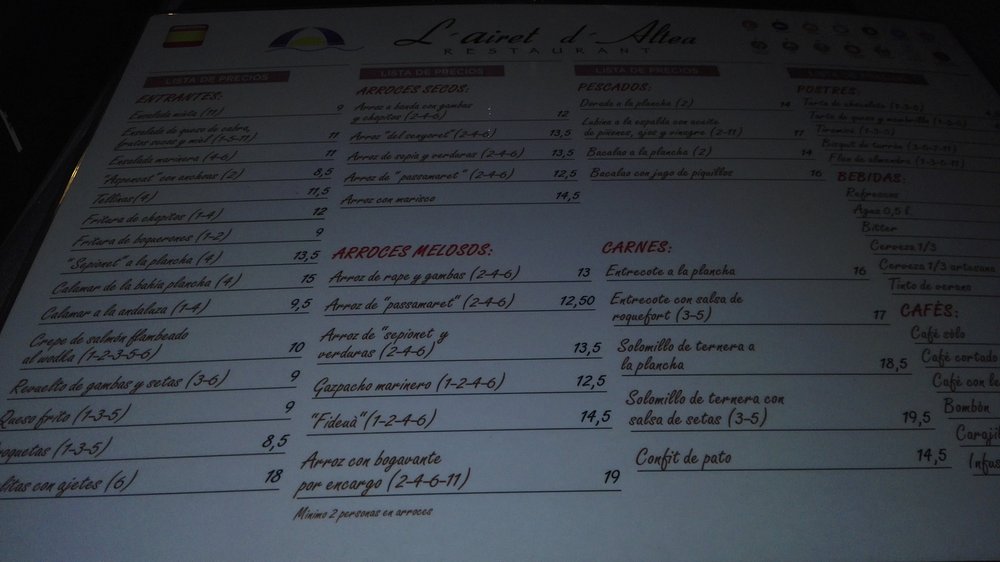 L'airet d'Altea
RESTAURANT
LISTA DE PRECIOS
ENTRANTES:
Ensalada mixta (11) 9
Ensalada de queso de cabra,
frutos secos y miel (1-5-11) 11
Ensalada marinera (4-6) 11
"Aspencat" con anchoas (2) 8,5
Tellinas (4) 11,5
Fritura de chopitos (1-4) 12
Fritura de boquerones (1-2) 9
"Sepionet" a la plancha (4) 13,5
Calamar de la bahía plancha (4) 15
Calamar a la andaluza (1-4) 9,5
Crepe de salmón flambeado
al wodka (1-2-3-5-6) 10
Revuelto de gambas y setas (3-6) 9
Queso frito (1-3-5) 9
roquetas (1-3-5) 8,5
litas con ajetes (6) 18
LISTA DE PRECIOS
ARROCES SECOS:
Arroz a banda con gambas
y chopitos (2-4-6) 12
Arroz "del senyoret" (2-4-6) 13,5
Arroz de sepia y verduras (2-4-6) 13,5
Arroz de "passamaret" (2-4-6) 12,5
Arroz con marisco 14,5
ARROCES MELOSOS:
Arroz de rape y gambas (2-4-6) 13
Arroz de "passamaret" (2-4-6) 12,50
Arroz de "sepionet y
verduras (2-4-6) 13,5
Gazpacho marinero (1-2-4-6) 12,5
"Fideuà" (1-2-4-6) 14,5
Arroz con bogavante
por encargo (2-4-6-11) 19
Mínimo 2 personas en arroces
LISTA DE PRECIOS
PESCADOS:
Dorada a la plancha (2) 14
Lubina a la espalda con aceite
de piñones, ajos y vinagre (2-11) 17
Bacalao a la plancha (2) 14
Bacalao con jugo de piquillos 16
CARNES:
Entrecote a la plancha 16
Entrecote con salsa de
roquefort (3-5) 17
Solomillo de ternera a
la plancha 18,5
Solomillo de ternera con
salsa de setas (3-5) 19,5
Confit de pato 14,5
LISTA DE PRECIOS
POSTRES:
Tarta de chocolate (1-3-5)
Tarta de queso y membrillo (1-3-5)
Tiramisú (1-3-5)
Bisquit de turrón (3-5-7-11)
Flan de almendra (1-3-5-11)
BEBIDAS:
Refrescos
Agua 0,5 l.
Bitter
Cerveza 1/3
Cerveza 1/3 artesana
Tinto de verano
CAFÉS:
Café sólo
Café cortado
Café con le
Bombón
Caraji
Infus